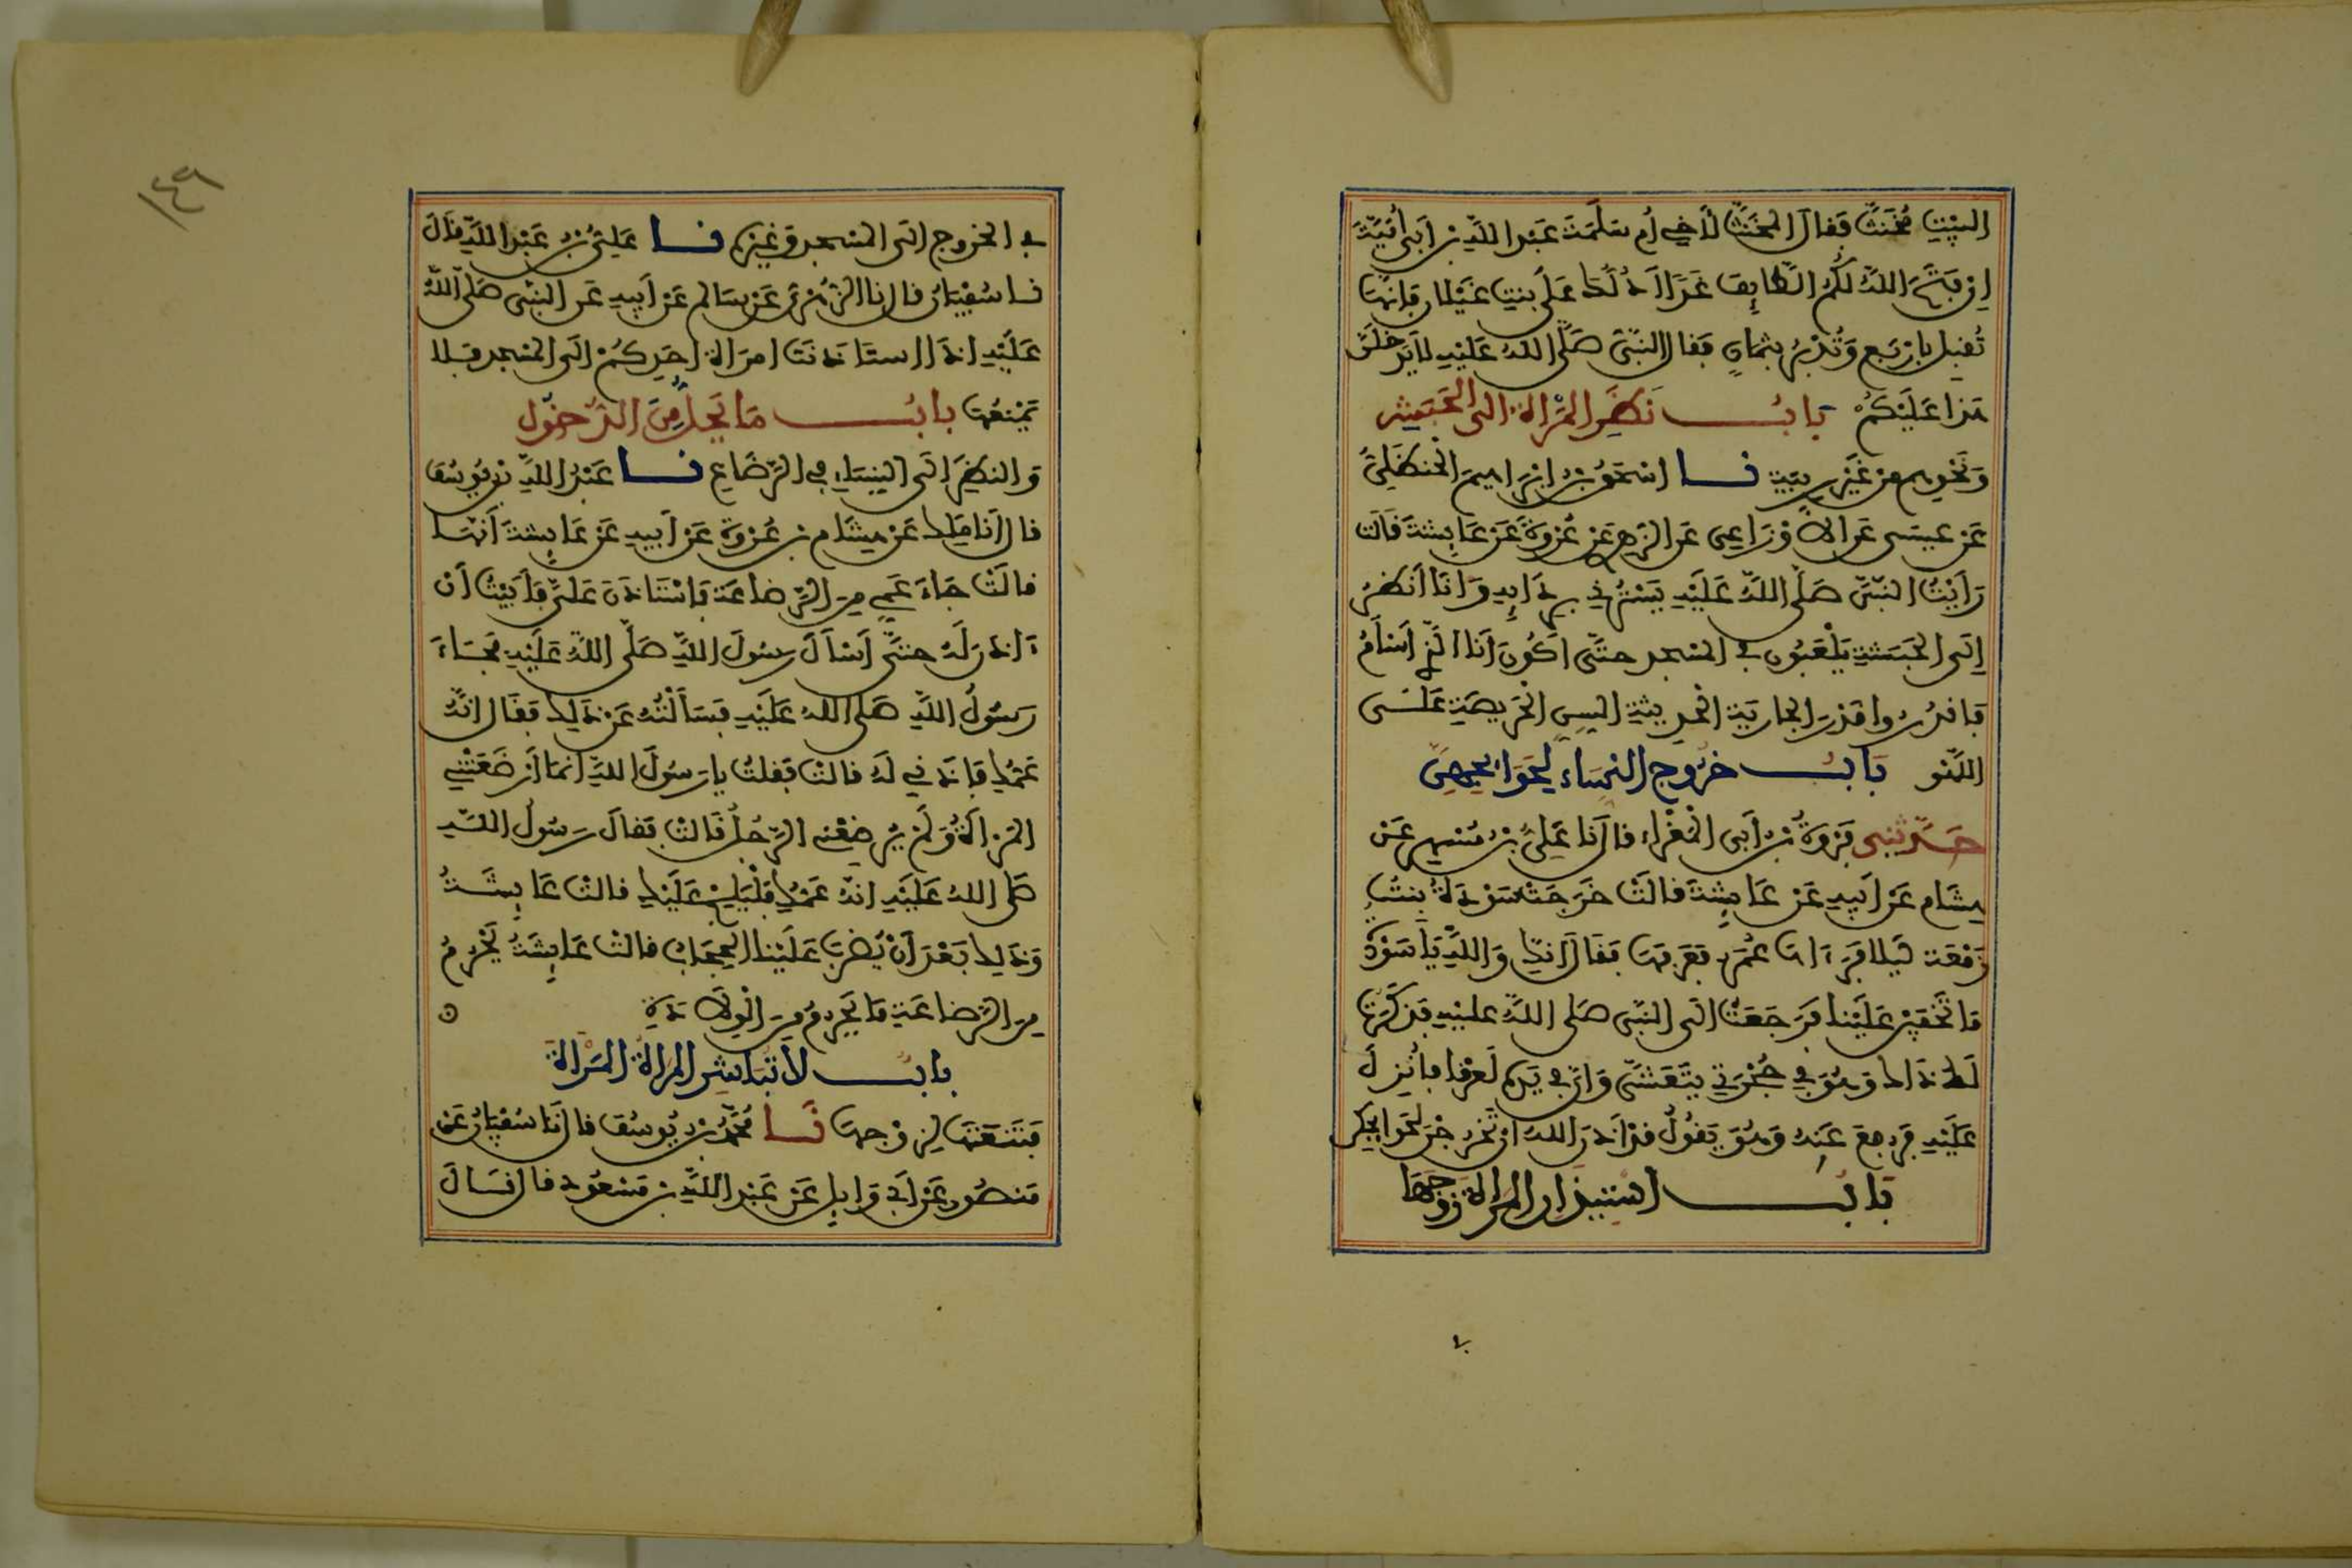 البيت مخنث فقال المخنث لأخي أم سلمة عبد الله بن أبي أمية
إن فتح الله لكم الطائف غدا أدلك على بنت غيلان فإنها
تقبل بأربع وتدبر بثمان فقال النبي صلى الله عليه لا يدخلن
هذا عليكم باب نظر المرأة إلى الحبش
ونحوهم من غير ريبة نا إسحق بن إبراهيم الحنظلي
عن عيسى عن الأوزاعي عن الزهري عن عروة عن عائشة قالت
رأيت النبي صلى الله عليه يسترني بردائه وأنا أنظر
إلى الحبشة يلعبون في المسجد حتى أكون أنا التي أسأم
فاقدروا قدر الجارية الحديثة السن الحريصة على
اللهو باب خروج النساء لحوائجهن
حدثني فروة بن أبي المغراء قال نا علي بن مسهر عن
هشام عن أبيه عن عائشة قالت خرجت سودة بنت
زمعة ليلا فرءاها عمر فعرفها فقال إنك والله يا سودة
ما تخفين علينا فرجعت إلى النبي صلى الله عليه فذكرت
ذلك له وهو في حجرتي يتعشى وإن في يده لعرقا فأنزل
عليه فرجع عنه وهو يقول قد أذن الله أن تخرجن لحوائجكن
باب استيذان المرأة زوجها
في الخروج إلى المسجد وغيره نا علي بن عبد الله قال
نا سفيان قال نا الزهري عن سالم عن أبيه عن النبي صلى الله
عليه إذا استأذنت امرأة أحدكم إلى المسجد فلا
يمنعها باب ما يحل من الدخول
والنظر إلى النساء في الرضاع نا عبد الله بن يوسف
قال أنا ملك عن هشام بن عروة عن أبيه عن عائشة أنها
قالت جاء عمي من الرضاعة فاستأذن علي فأبيت أن
ءاذن له حتى أسأل رسول الله صلى الله عليه فجاء
رسول الله صلى الله عليه فسألته عن ذلك فقال إنه
عمك فأذني له قالت فقلت يا رسول الله إنما أرضعتني
المرأة ولم يرضعني الرجل قالت فقال رسول الله
صلى الله عليه إنه عمك فليلج عليك قالت عائشة
وذلك بعد أن يضرب علينا الحجاب قالت عائشة يحرم
من الرضاعة ما يحرم من الولادة
باب لا تباشر المرأة المرأة
فتنعتها لزوجها نا محمد بن يوسف قال نا سفيان عن
منصور عن أبي وايل عن عبد الله بن مسعود قال قال
١٤٩